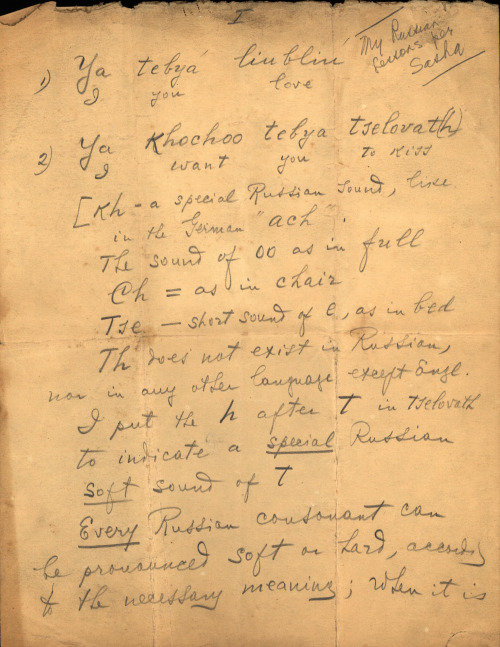 I
My Russian
lessons for
Sasha
1) Ya tebyá liubliu
I you love
2) Ya Khochoo tebya tselovat(h)
I want you to kiss
[Kh - a special Russian sound, like
in the German "ach".
The sound of oo as in full
Ch = as in chair
Tse — short sound of e, as in bed
Th does not exist in Russian,
nor in any other language except Engl.
I put the h after T in tselovath
to indicate a special Russian
soft sound of T
Every Russian consonant can
be pronounced soft or hard, accordig
to the necessary meaning; when it is